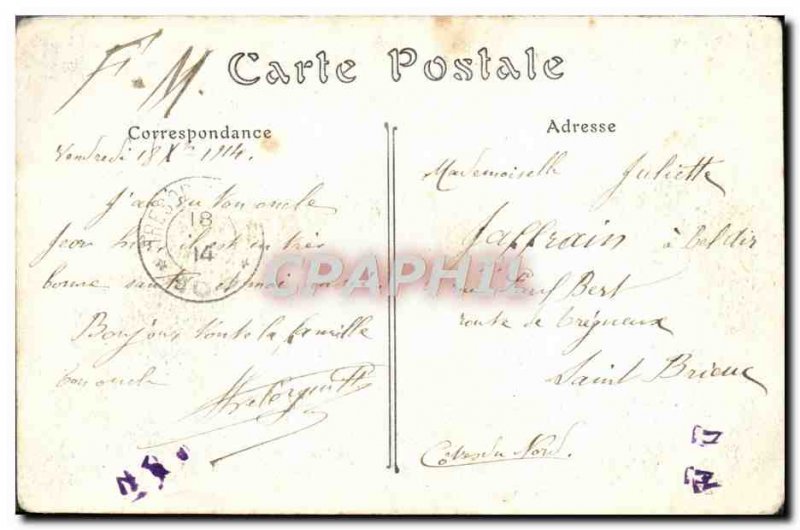 F.M.
Carte Postale
Correspondance
Vendredi 18 Xbre 1914.
J'ai vu ton oncle
hier, il est en très
bonne santé et moi aussi.
Bonjour toute la famille
ton oncle
Adresse
Mademoiselle Juliette
Jaffrain à bel air
Paul Bert
route de Trégueux
Saint Brieuc
Côtes du Nord.
TRESOR
18
14
CPAPHIL